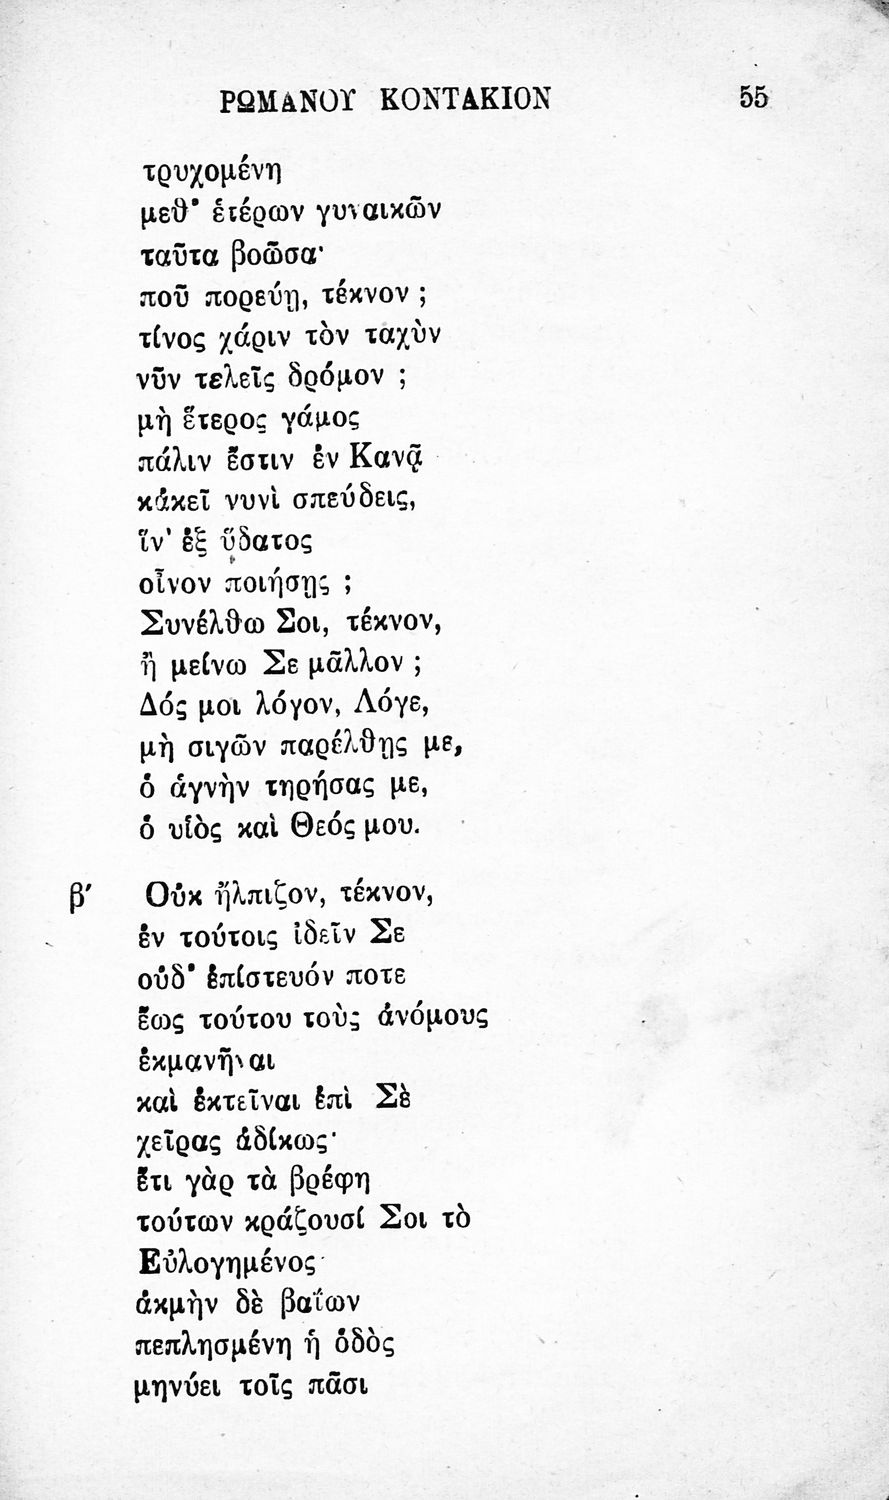 ΡΩΜΑΝΟΥ ΚΟΝΤΑΚΙΟΝ 55
τρυχομένη
μεθ' ἑτέρων γυναικῶν
ταῦτα βοῶσα·
ποῦ πορεύῃ, τέκνον ;
τίνος χάριν τὸν ταχὺν
νῦν τελεῖς δρόμον ;
μὴ ἕτερος γάμος
πάλιν ἔστιν ἐν Κανᾷ
κἀκεῖ νυνὶ σπεύδεις,
ἵν' ἐξ ὕδατος
οἶνον ποιήσῃς ;
Συνέλθω Σοι, τέκνον,
ἢ μείνω Σε μᾶλλον ;
Δός μοι λόγον, Λόγε,
μὴ σιγῶν παρέλθῃς με,
ὁ ἁγνὴν τηρήσας με,
ὁ υἱὸς καὶ Θεός μου.
β' Οὐκ ἤλπιζον, τέκνον,
ἐν τούτοις ἰδεῖν Σε
οὐδ' ἐπίστευόν ποτε
ἕως τούτου τοὺς ἀνόμους
ἐκμανῆναι
καὶ ἐκτεῖναι ἐπὶ Σὲ
χεῖρας ἀδίκως·
ἔτι γὰρ τὰ βρέφη
τούτων κράζουσί Σοι τὸ
Εὐλογημένος·
ἀκμὴν δὲ βαΐων
πεπλησμένη ἡ ὁδὸς
μηνύει τοῖς πᾶσι